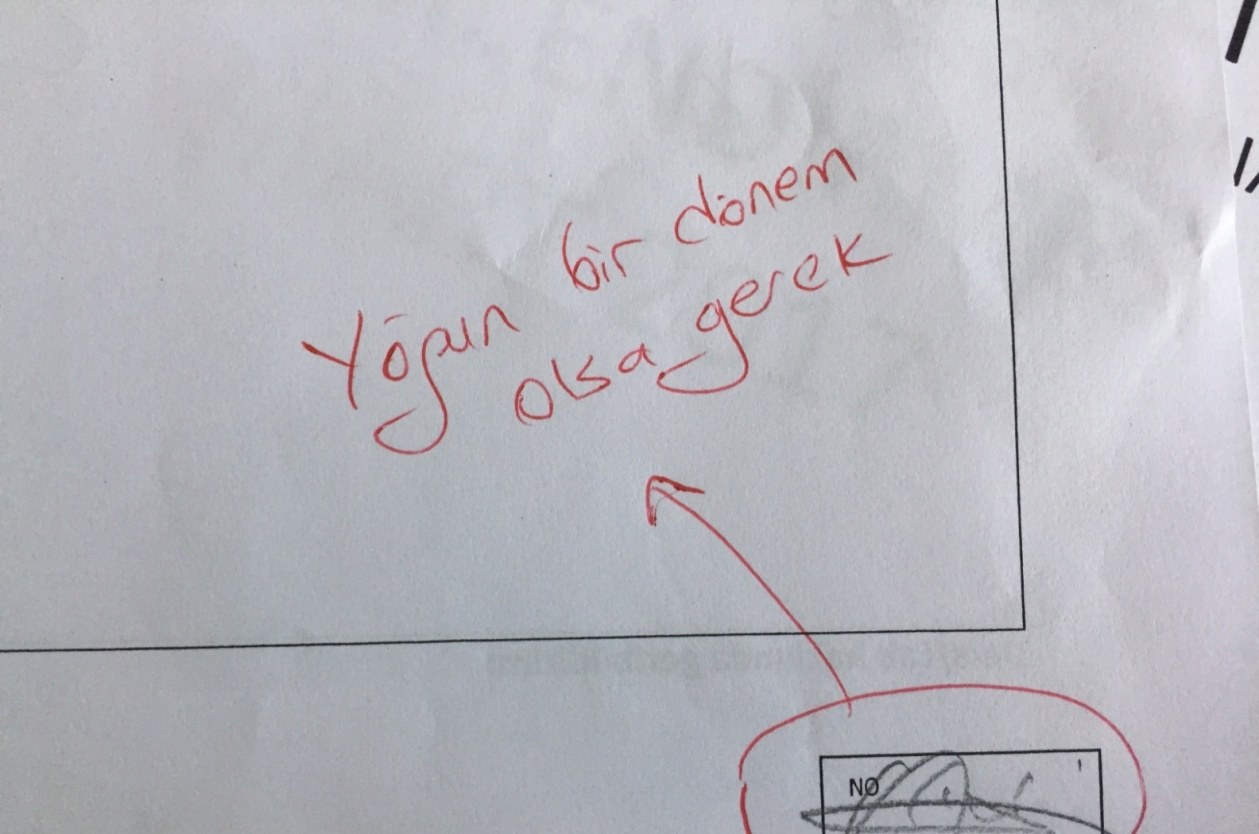 Yoğun bir dönem
olsa gerek
NO